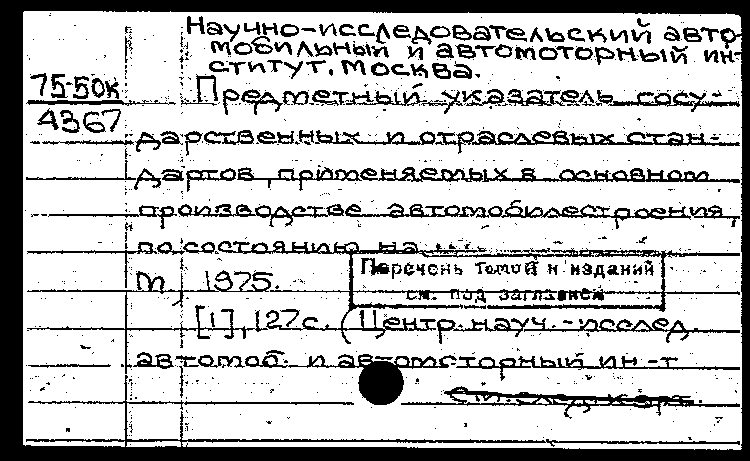 Научно-исследовательский авто-
мобильный и автомоторный ин-
ститут. Москва.
75-50к
4367
Предметный указатель госу-
дарственных и отраслевых стан-
дартов, применяемых в основном
производстве автомобилестроения,
по состоянию на ....
М., 1975.
Перечень томов и изданий
см. под заглавием
[1], 127с. (Центр. науч.-исслед.
автомоб. и автомоторный ин-т
См. след. карт.